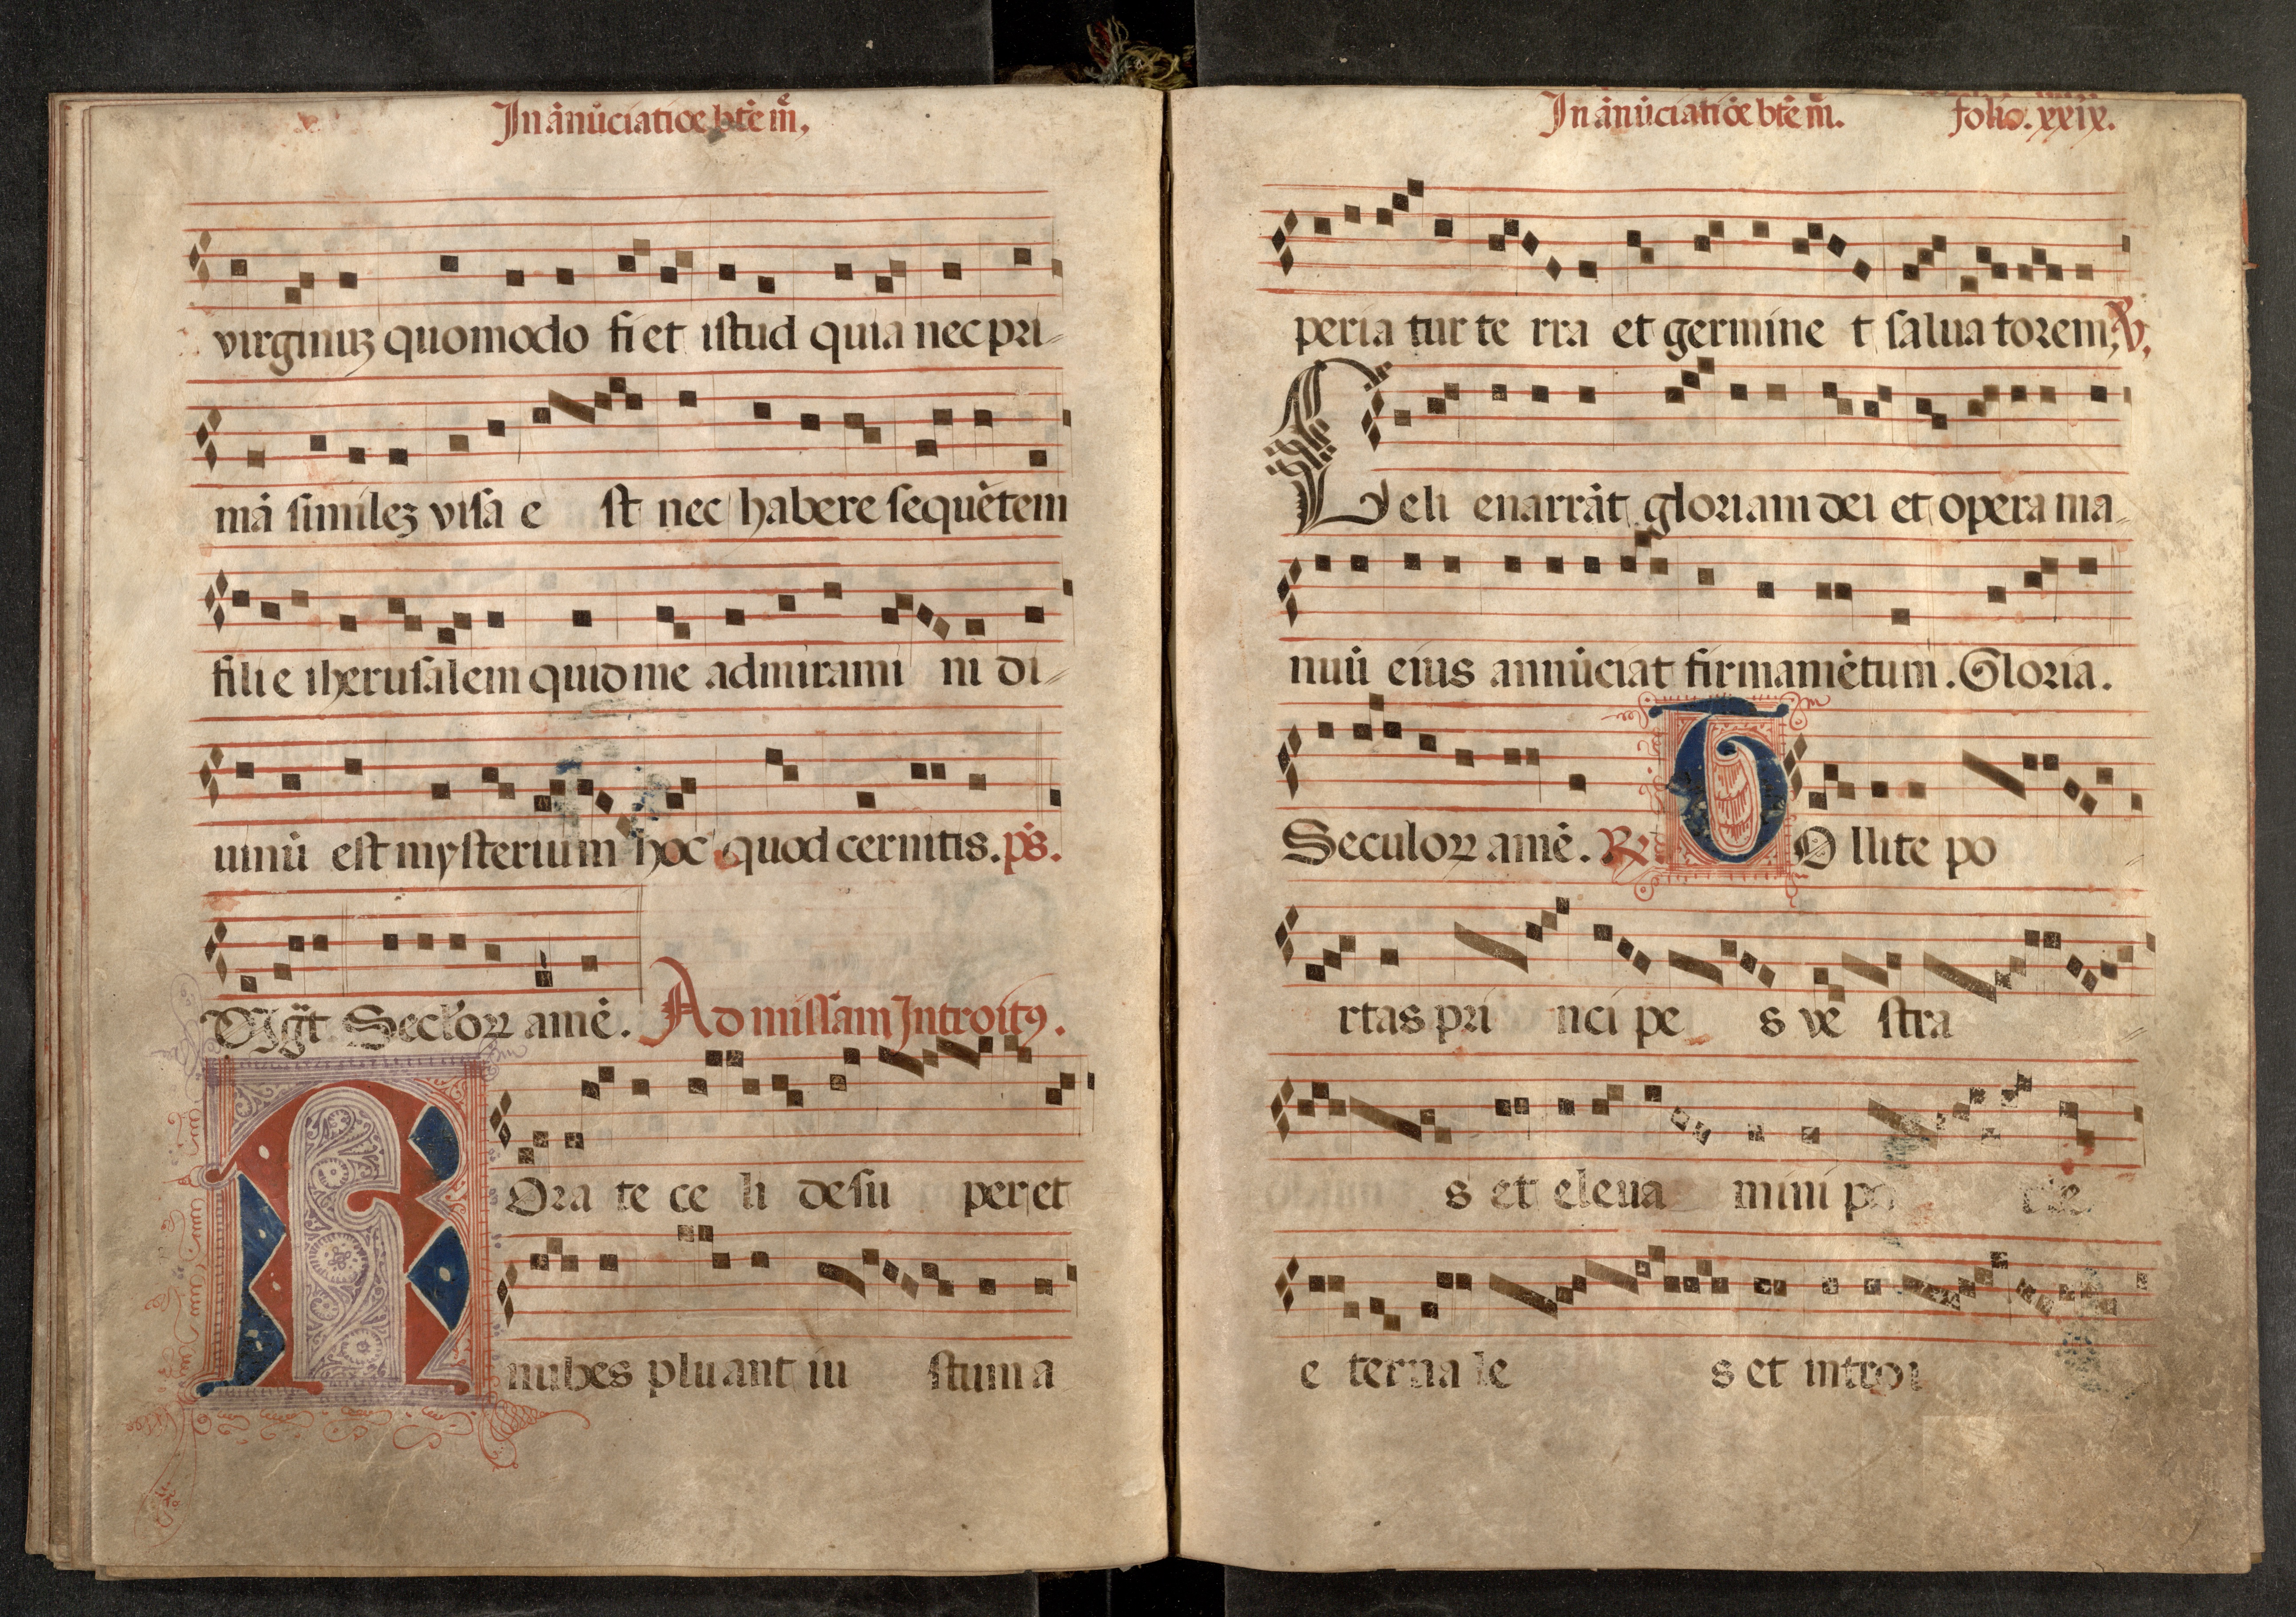 In ānūciatiōe btē mē,
virginuʒ quomodo fiet istud quia nec pri-
mā similez visa e st nec habere sequētem
filie iherusalem quid me admirami ni di-
uinū est mysterium hoc quod cernitis. ps.
Dixit. Seclorꝝ amē. Ad missam Introitꝰ.
R Ora te ce li desu per et
nubes pluant iu stum a
In ānūciatiōe btē mē. folio. xxix.
peria tur te rra et germine t salua torem, ℣.
Celi enarrāt gloriam dei et opera ma-
nuū eius annūciat firmamētum. Gloria.
Seculorꝝ amē. ℟. T O llite po -
rtas pri nci pe s ve stra -
s et eleua mini po rte
e terna le s et introi